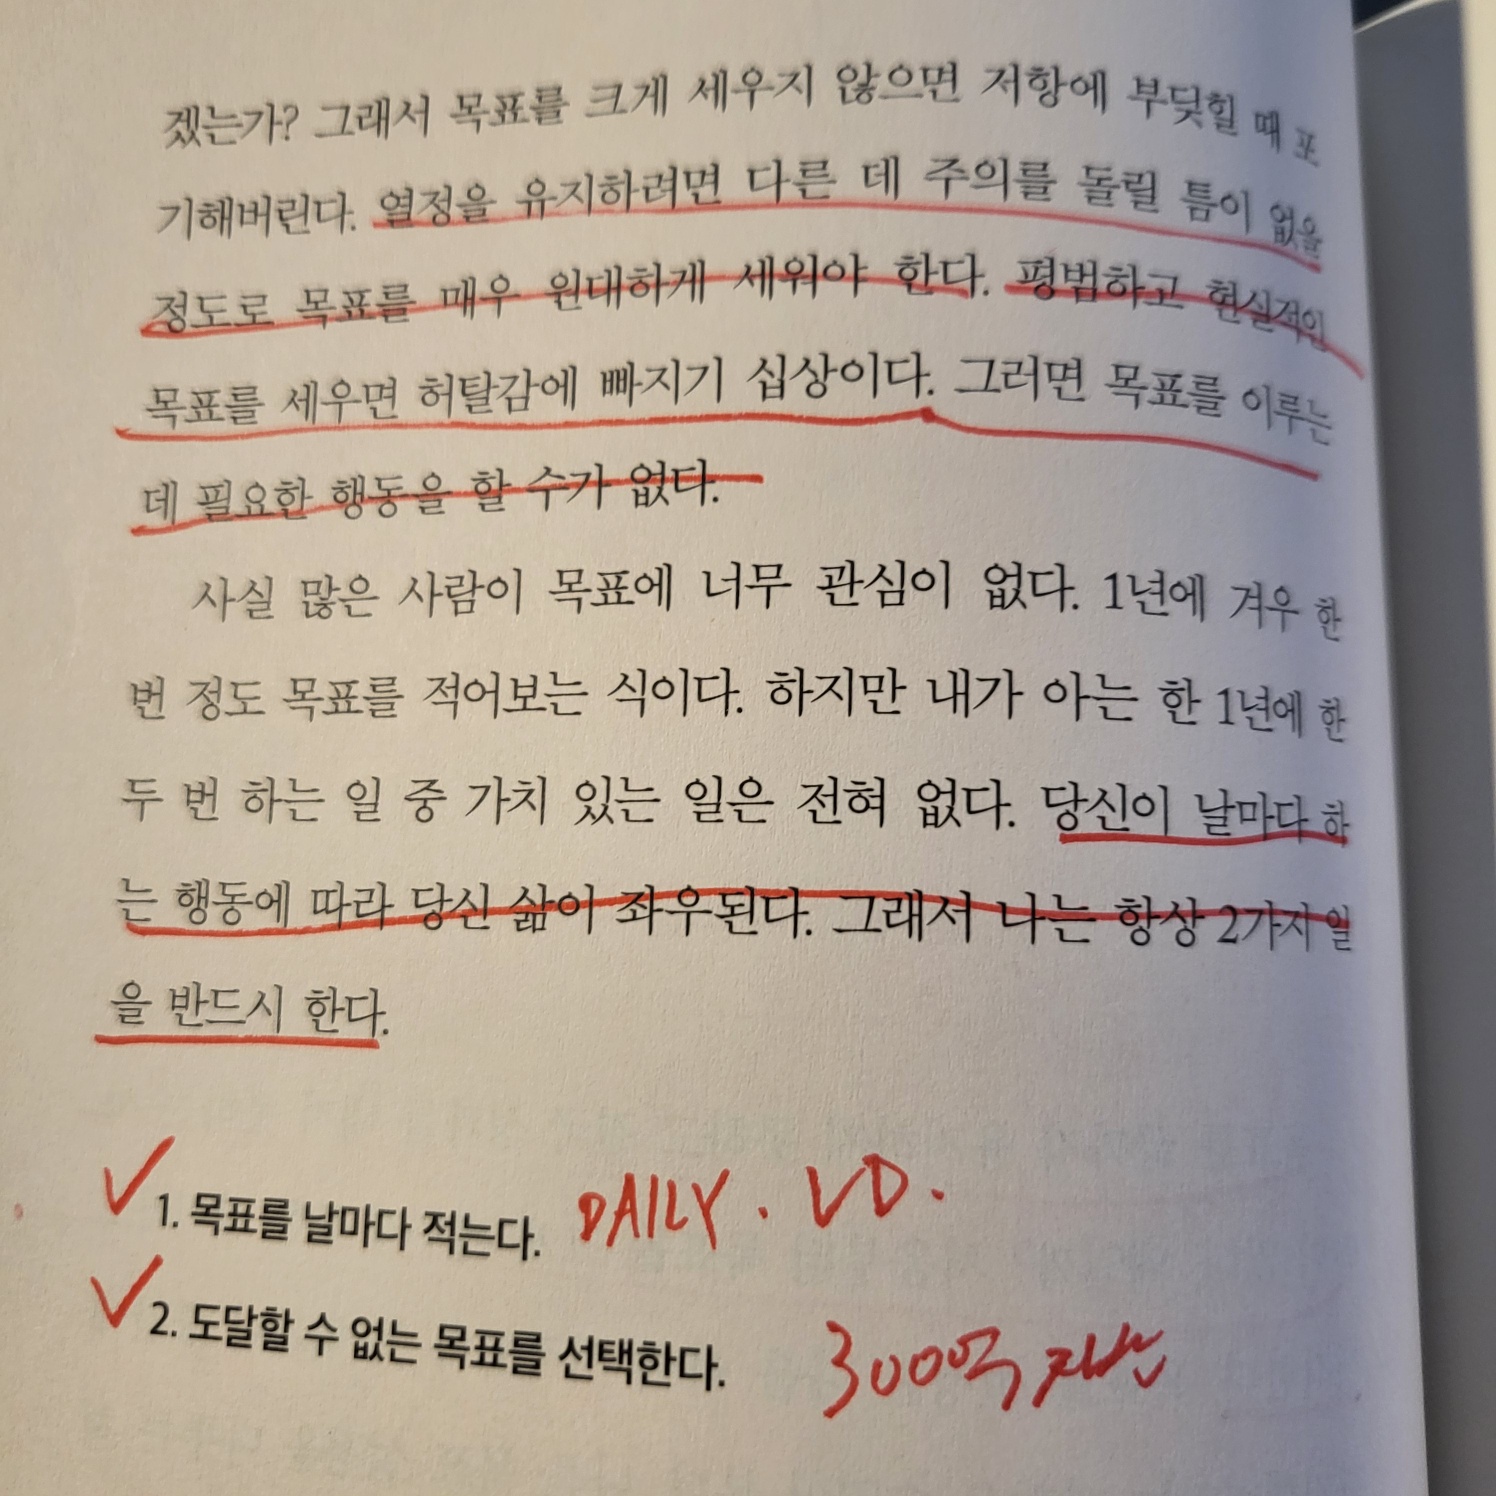 겠는가? 그래서 목표를 크게 세우지 않으면 저항에 부딪힐 때 포
기해버린다. 열정을 유지하려면 다른 데 주의를 돌릴 틈이 없을
정도로 목표를 매우 원대하게 세워야 한다. 평범하고 현실적인
목표를 세우면 허탈감에 빠지기 십상이다. 그러면 목표를 이루는
데 필요한 행동을 할 수가 없다.
사실 많은 사람이 목표에 너무 관심이 없다. 1년에 겨우 한
번 정도 목표를 적어보는 식이다. 하지만 내가 아는 한 1년에 한
두 번 하는 일 중 가치 있는 일은 전혀 없다. 당신이 날마다 하
는 행동에 따라 당신 삶이 좌우된다. 그래서 나는 항상 2가지 일
을 반드시 한다.
1. 목표를 날마다 적는다. DAILY. VD.
2. 도달할 수 없는 목표를 선택한다. 300억 자산